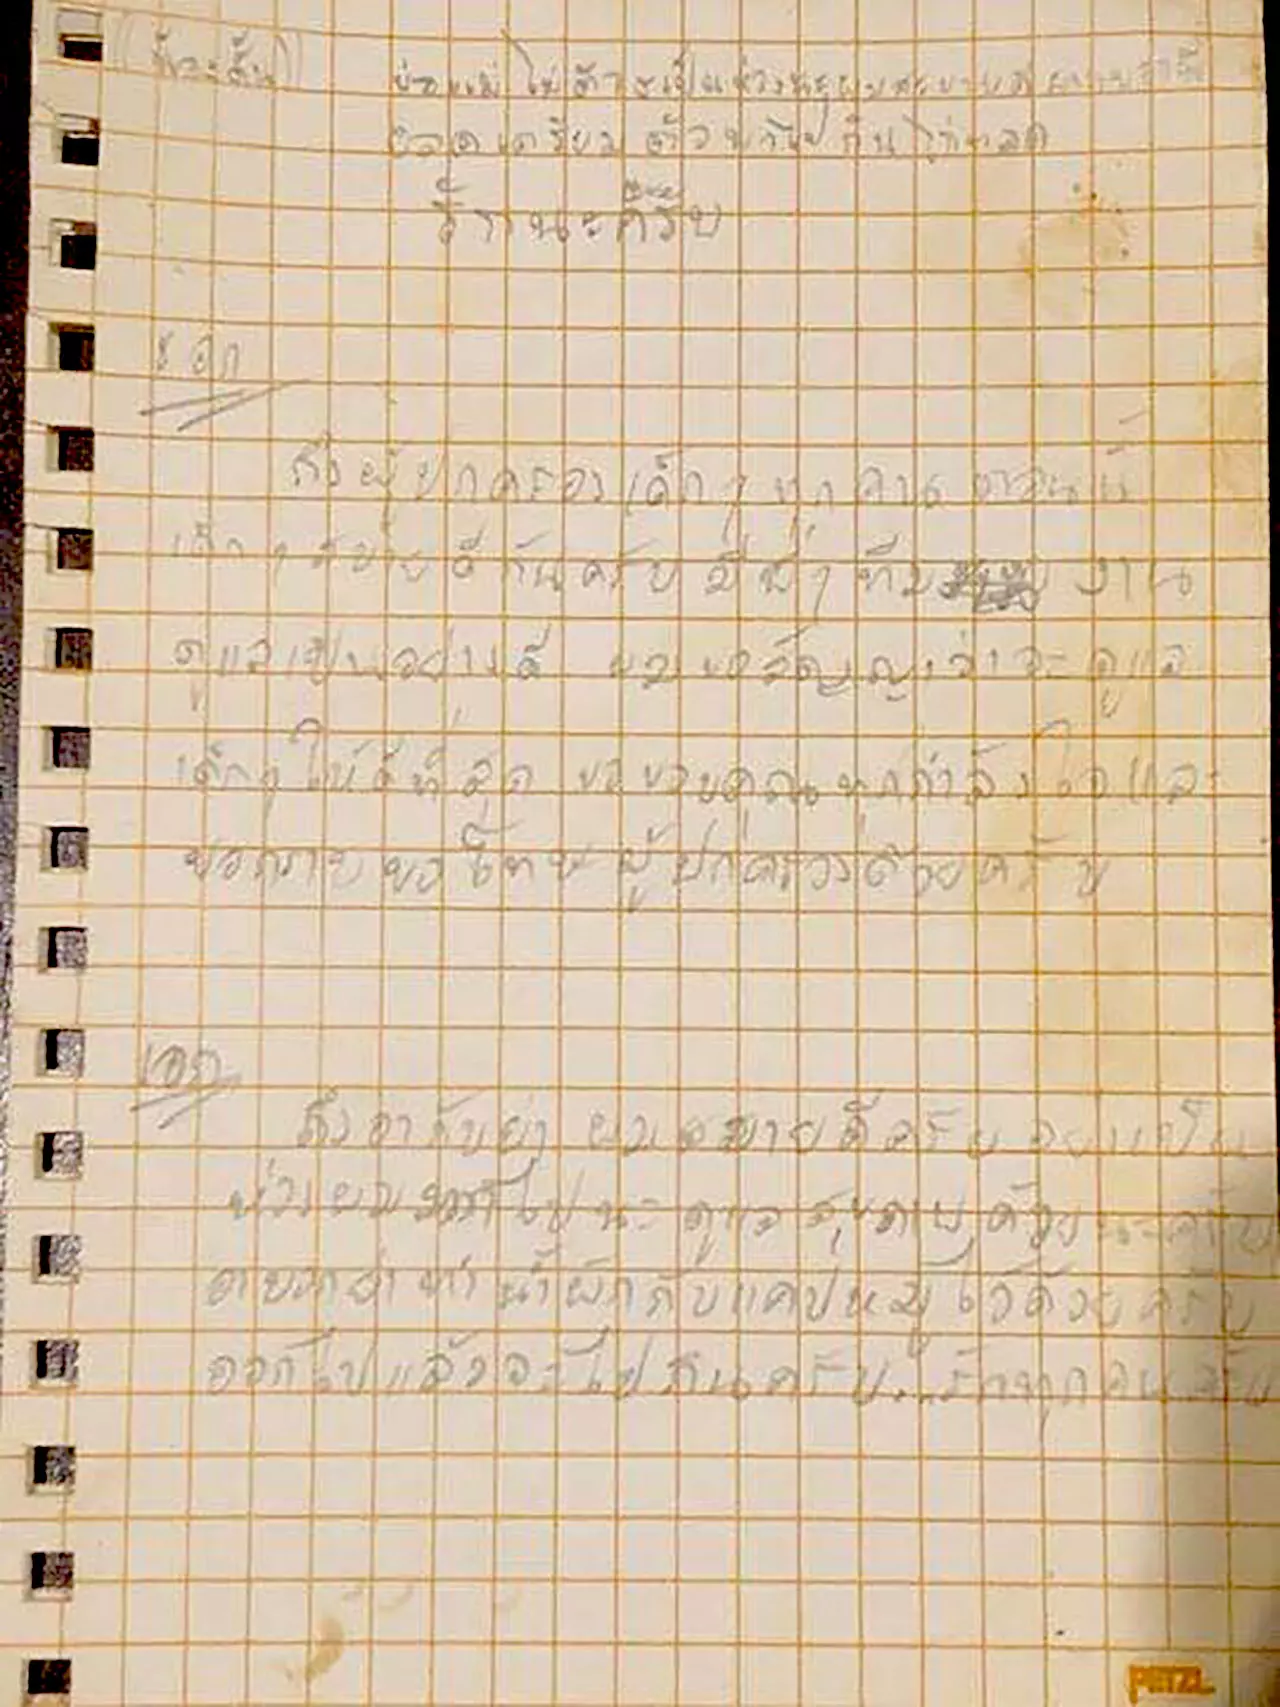 พ่อแม่ ไม่ต้องเป็นห่วงนะผมสบายดี
บอกเตรียม พาไปกินไก่ทอด
รักนะครับ
เอก
ถึงผู้ปกครองเด็กๆ ทุกคน ตอนนี้
เด็กๆ สบายดีกันครับ มีพี่ๆ ทีม งาน
ดูแลเป็นอย่างดี ผมขอสัญญาว่าจะดูแล
เด็กๆ ให้ดีที่สุด ขอขอบคุณทุกกำลังใจและ
ขอกราบขอโทษผู้ปกครองด้วยครับ
เอก
ถึงอากับย่า ผมสบายดีครับ อย่าเป็น
ห่วงผม ไปนะ ดูแลสุขภาพด้วยนะครับ
อาบอกย่าทำน้ำผักกับแคปหมูไว้ด้วยครับ
ออกไปแล้วจะไปกินครับ...รักทุกคนครับ
PETZL